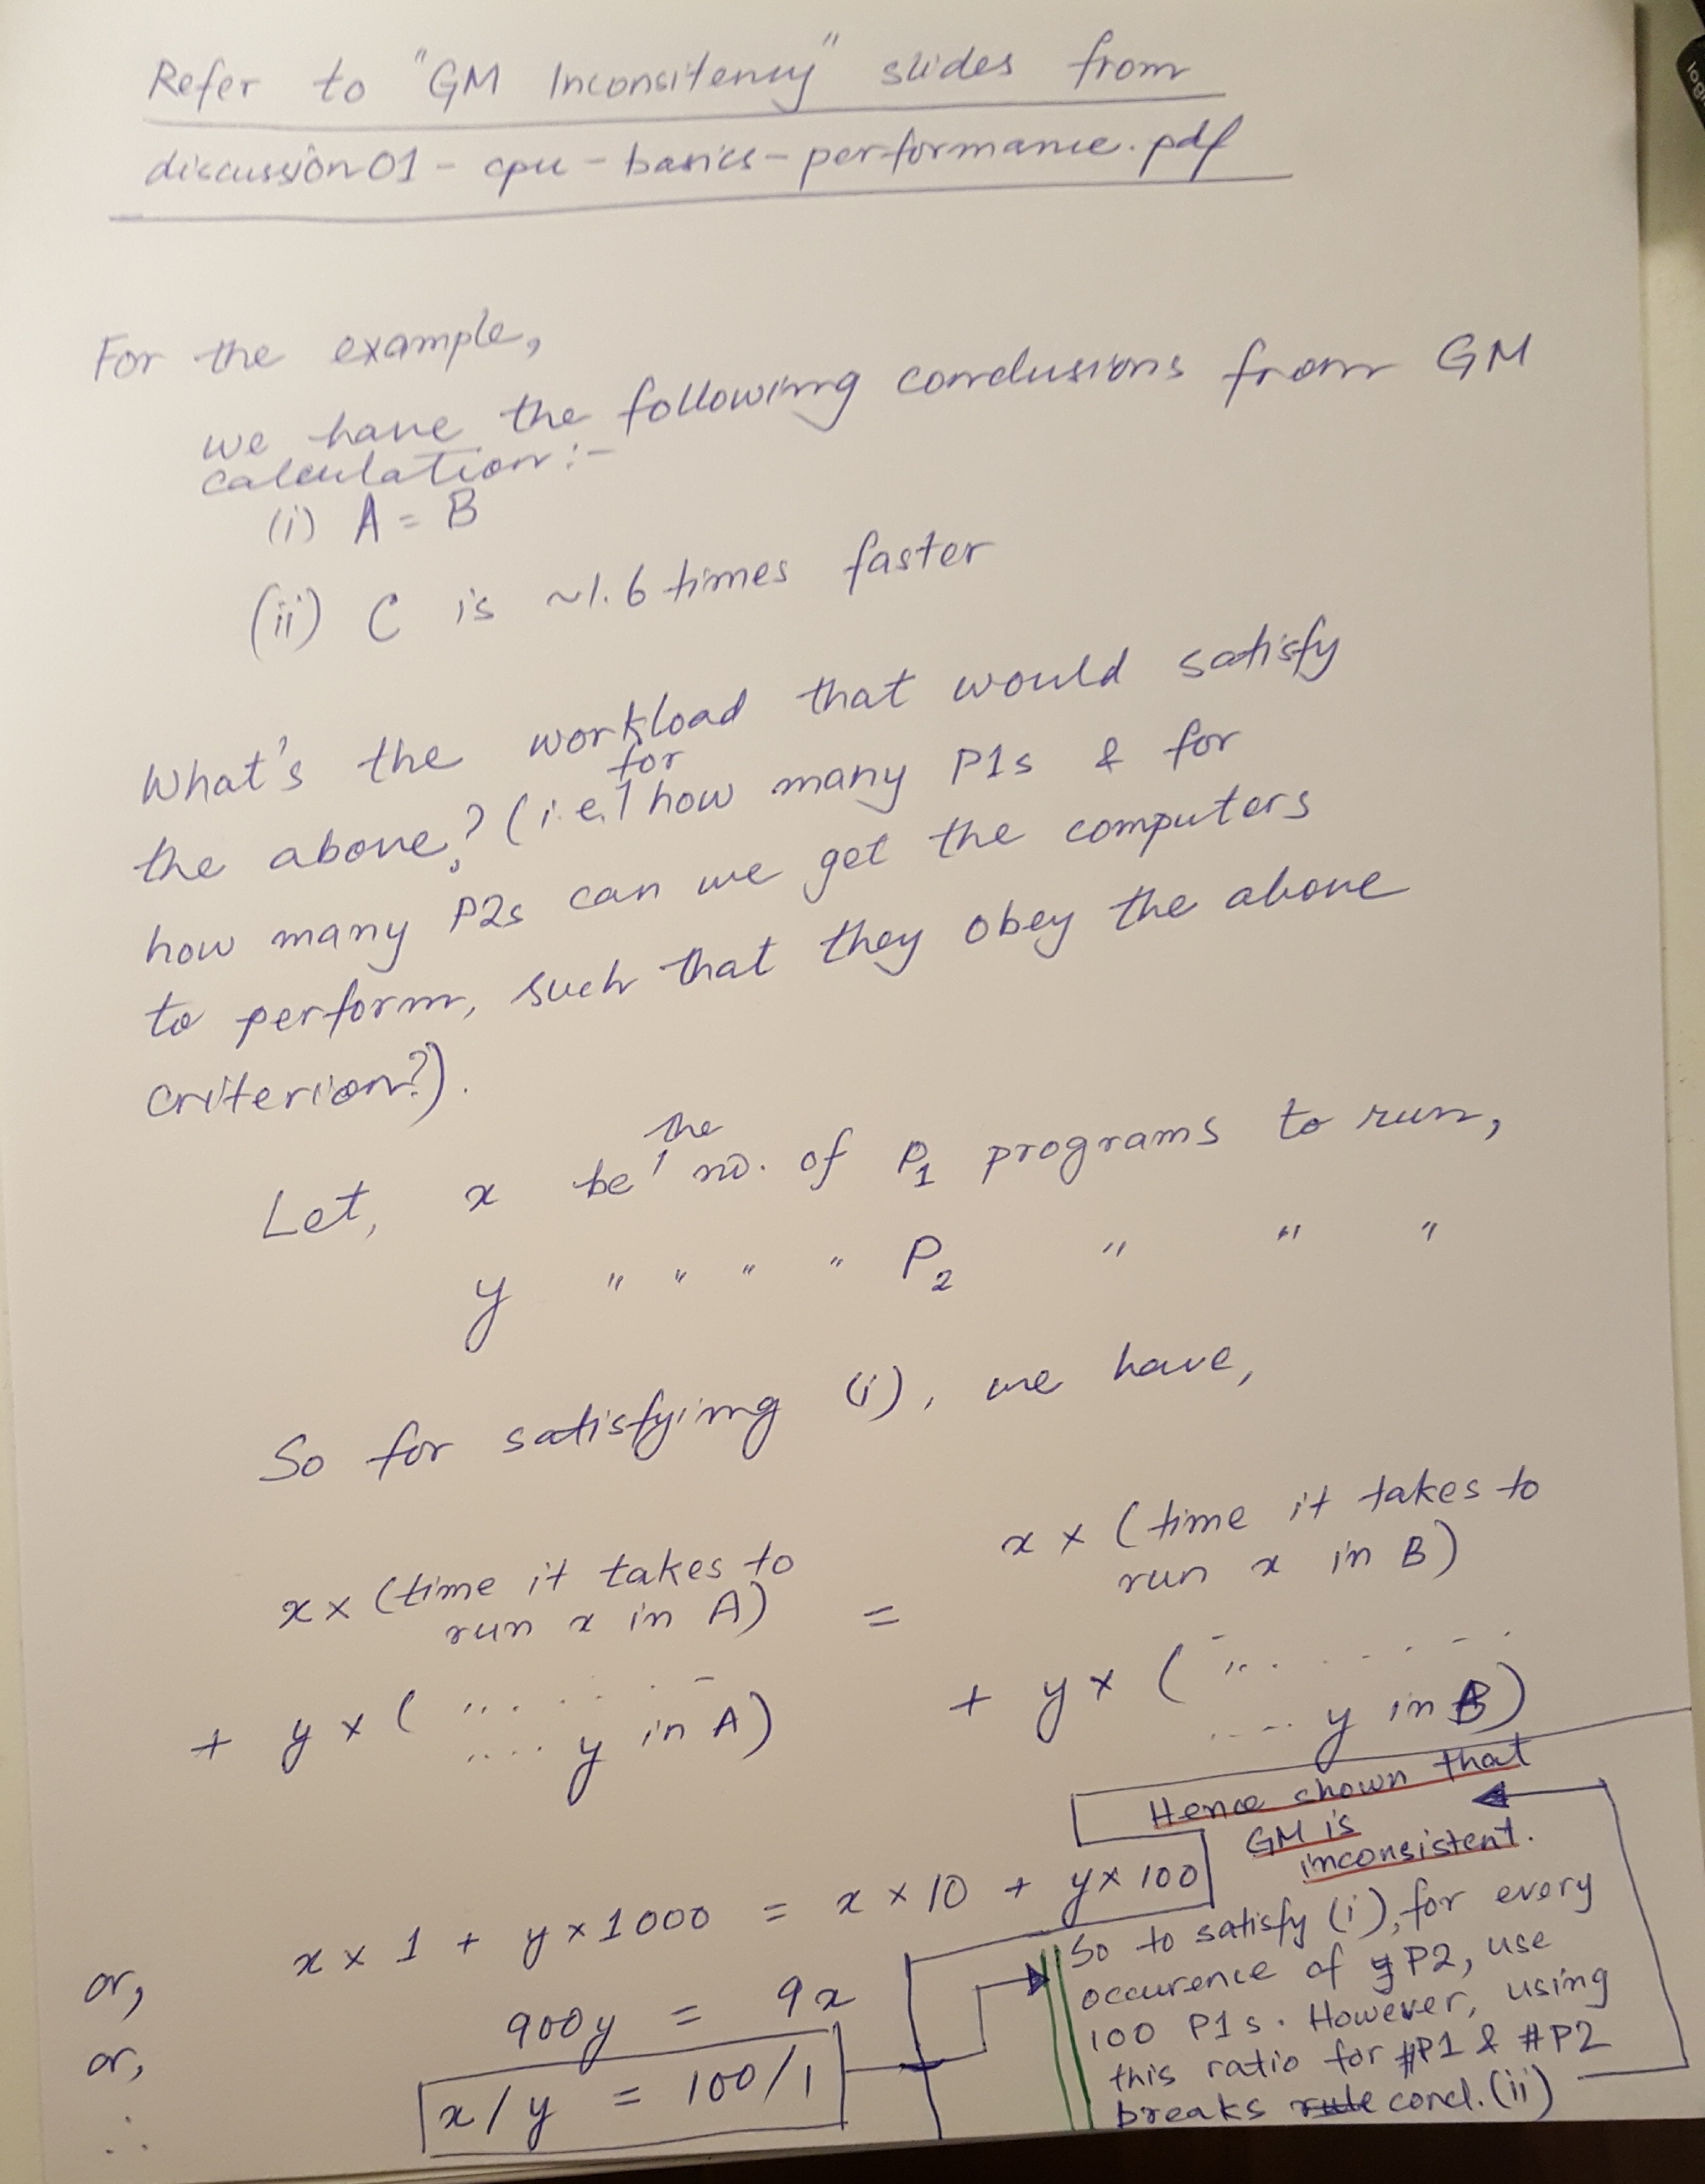 Refer to "GM Inconsitency" slides from
discussion01-cpu-basics-performance.pdf
For the example,
we have the following conclusions from GM
calculation:-
(i) A = B
(ii) C is ~1.6 times faster
What's the workload that would satisfy
the above? (i.e. for how many P1s & for
how many P2s can we get the computers
to perform, such that they obey the above
criterion?).
Let, x be the no. of P1 programs to run,
y " " " " P2 " " "
So for satisfying (i), we have,
x × (time it takes to
run x in A)
+ y × ( .........
.... y in A)
=
x × (time it takes to
run x in B)
+ y × ( .........
.... y in B)
or, x × 1 + y × 1000 = x × 10 + y × 100
or, 900y = 9x
∴ x/y = 100/1
So to satisfy (i), for every
occurence of P2, use
100 P1s. However, using
this ratio for #P1 & #P2
breaks rule concl. (ii)
Hence shown that
GM is
inconsistent.
log